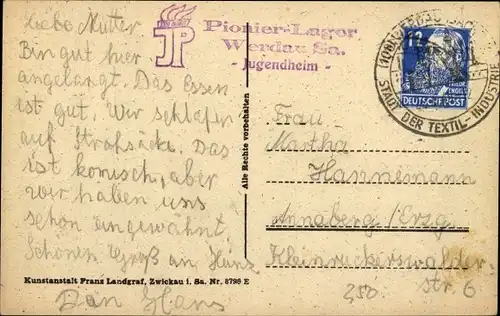 liebe Mutter
Bin gut hier
angelangt. Das Essen
ist gut. Wir schlafen
auf Strohsäcke. Das
ist komisch, aber
wir haben uns
schon eingewöhnt.
Schönen Gruß an Heinz
Dein Hans
JP
Pionier-Lager
Werdau Sa.
- Jugendheim -
STADT DER TEXTIL-INDUSTRIE
12
DEUTSCHE POST
Alle Rechte vorbehalten
Frau
Martha
Hannemann
Annaberg /Erzg.
Kleinrückerswalder-
str. 6
Kunstanstalt Franz Landgraf, Zwickau i. Sa. Nr. 8798 E
350